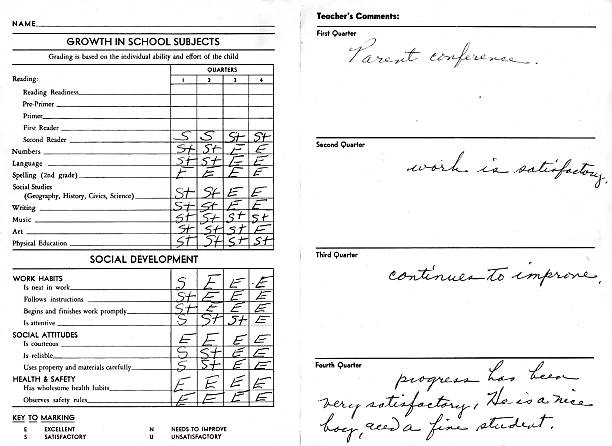 NAME
GROWTH IN SCHOOL SUBJECTS
Grading is based on the individual ability and effort of the child
QUARTERS
Reading: 1 2 3 4
Reading Readiness
Pre-Primer
Primer
First Reader
Second Reader S S S+ S+
Numbers S+ S+ E E
Language S+ S+ E E
Spelling (2nd grade) E E E
Social Studies
(Geography, History, Civics, Science) S+ S+ E E
Writing S+ S+ E E
Music S+ S+ S+ S+
Art S+ S+ S+ E
Physical Education S+ S+ S+ S+
SOCIAL DEVELOPMENT
WORK HABITS
Is neat in work S E E E
Follows instructions S+ E E E
Begins and finishes work promptly S+ E E E
Is attentive S S+ S+ E
SOCIAL ATTITUDES
Is courteous E E E E
Is reliable S S+ E E
Uses property and materials carefully S S+ E E
HEALTH & SAFETY
Has wholesome health habits E E E E
Observes safety rules E E E E
KEY TO MARKING
E EXCELLENT N NEEDS TO IMPROVE
S SATISFACTORY U UNSATISFACTORY
Teacher's Comments:
First Quarter
Parent conference.
Second Quarter
work is satisfactory.
Third Quarter
continues to improve.
Fourth Quarter
progress has been
very satisfactory, He is a nice
boy, and a fine student.